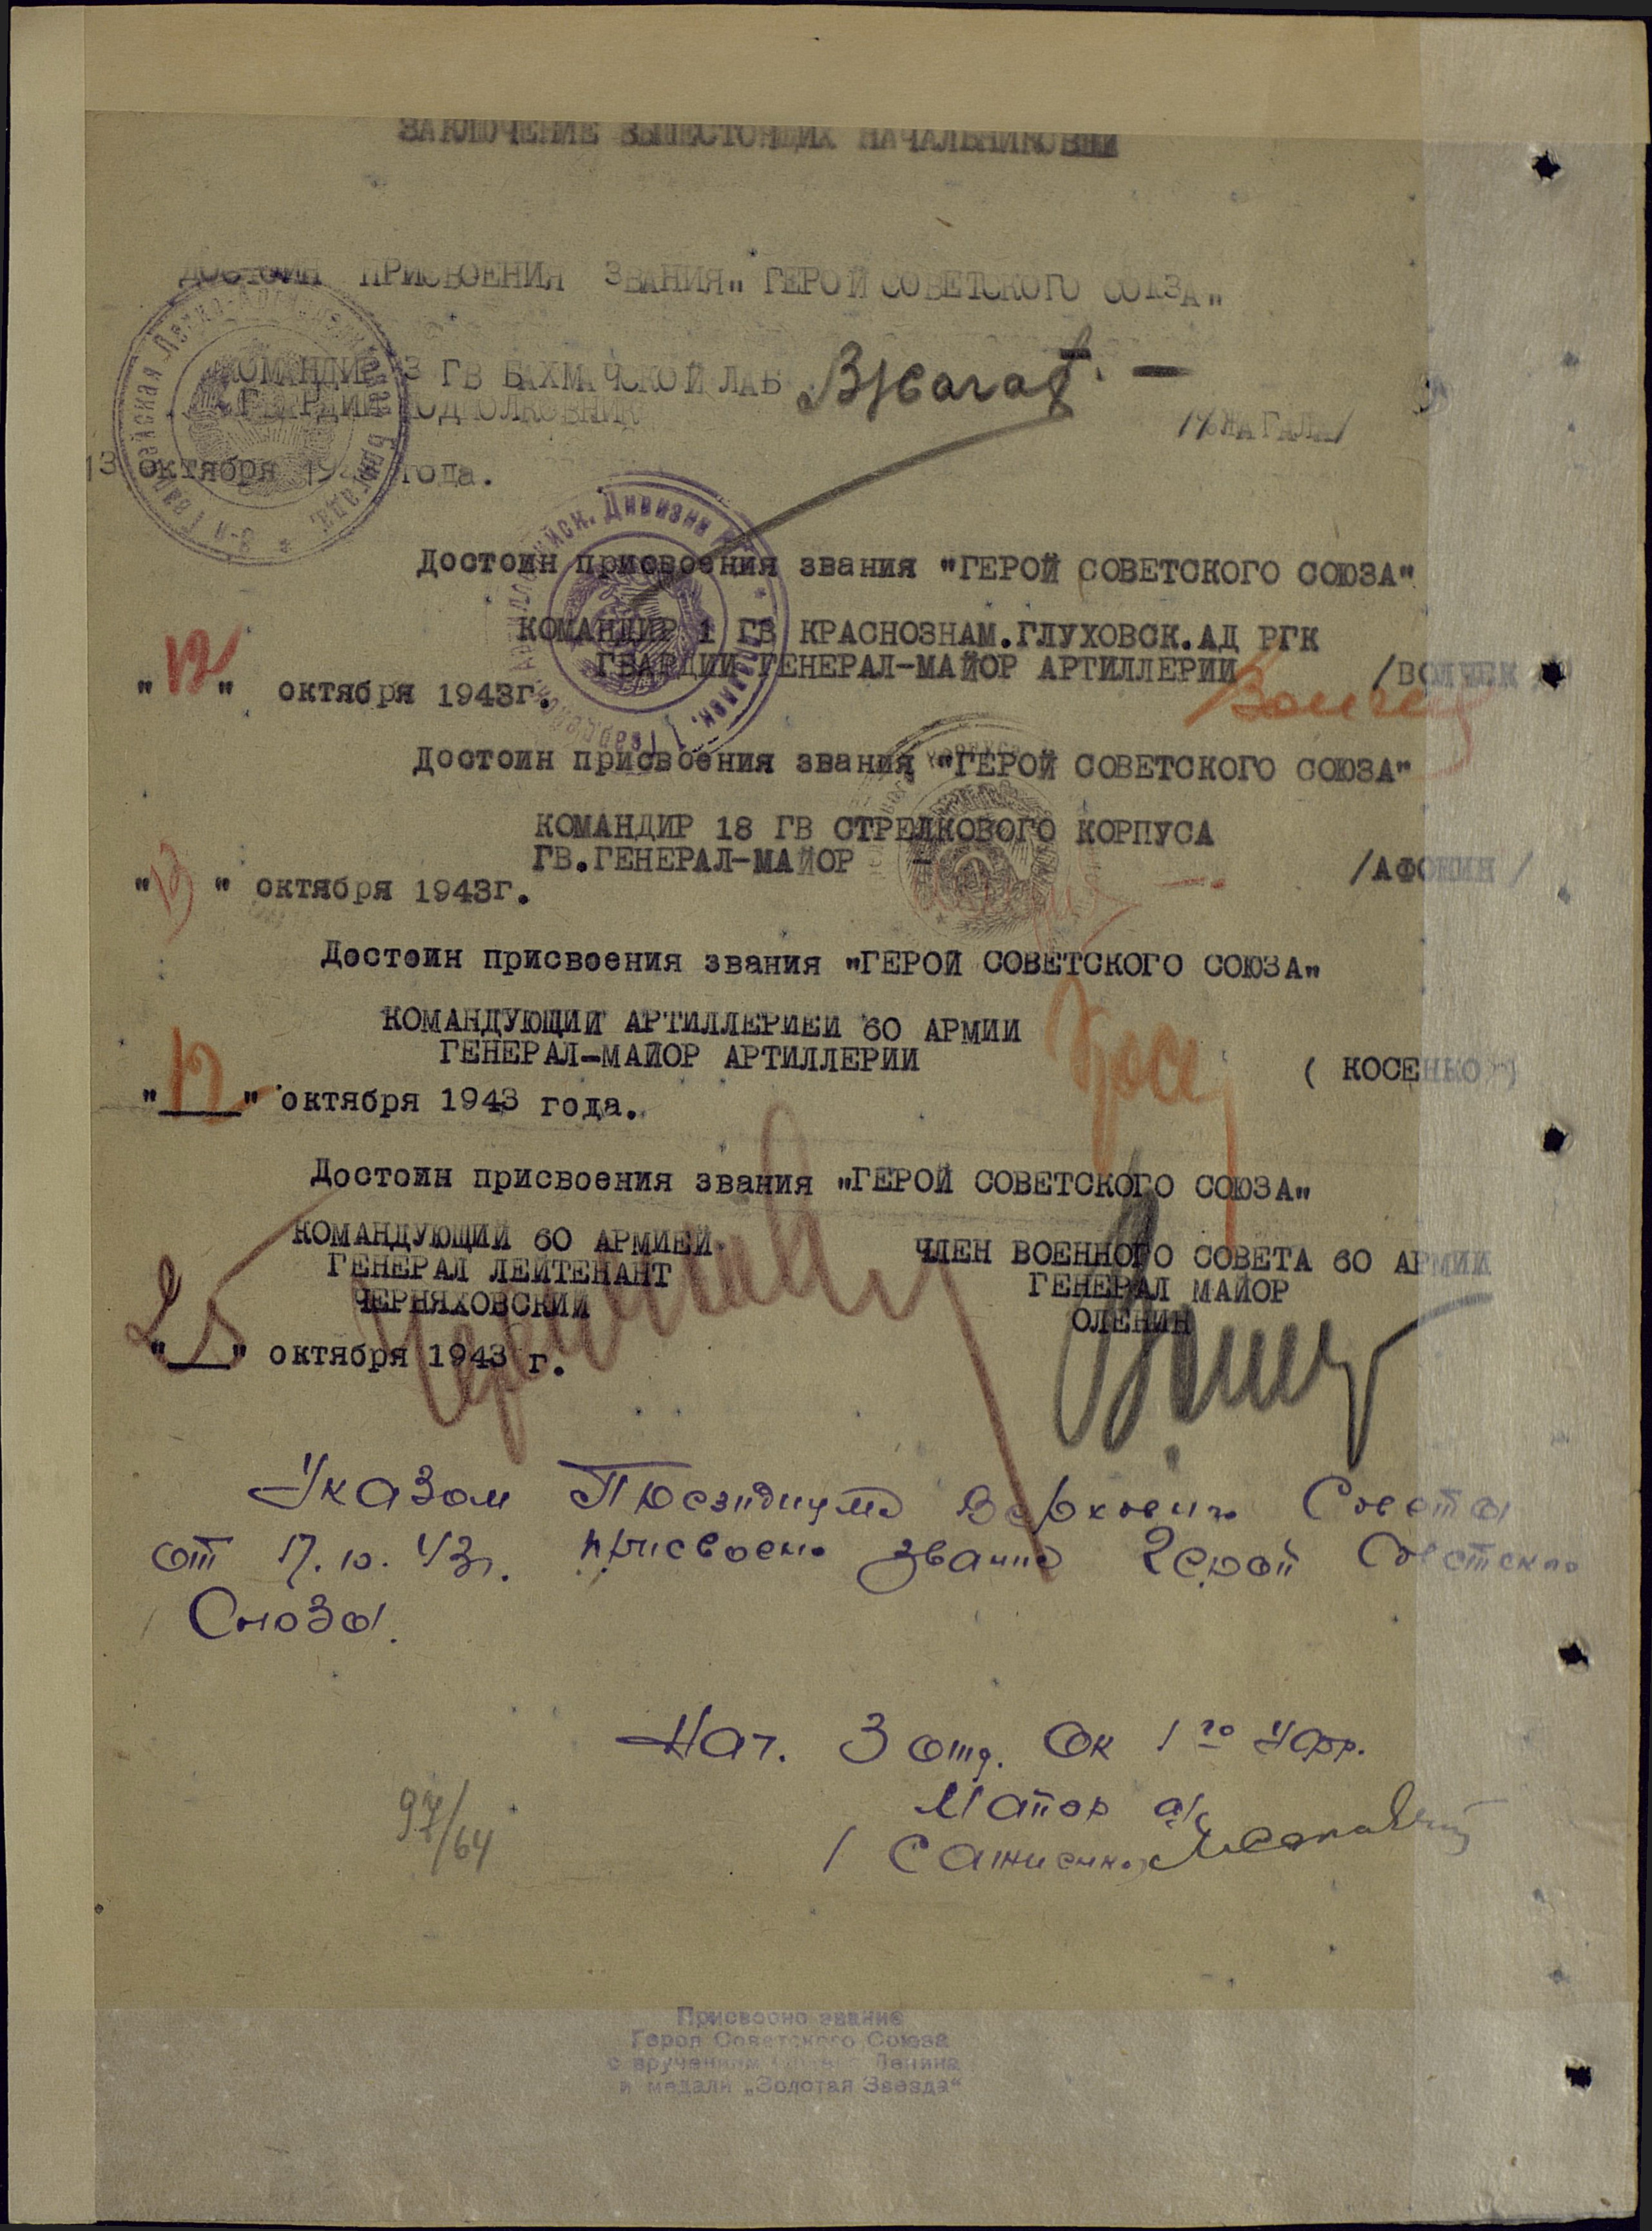 ЗАКЛЮЧЕНИЕ ВЫШЕСТОЯЩИХ НАЧАЛЬНИКОВ
ДОСТОИН ПРИСВОЕНИЯ ЗВАНИЯ „ ГЕРОЙ СОВЕТСКОГО СОЮЗА „
КОМАНДИР 3 ГВ БАХМАЧСКОЙ ЛАБ
ГВАРДИИ ПОДПОЛКОВНИК
/ЖАГАЛА/
13 октября года.
Достоин присвоения звания "ГЕРОЙ СОВЕТСКОГО СОЮЗА"
КОМАНДИР 1 ГВ КРАСНОЗНАМ.ГЛУХОВСК.АД РГК
ГВАРДИИ ГЕНЕРАЛ-МАЙОР АРТИЛЛЕРИИ /ВОЛЧЕК
"12" октября 1943г.
Достоин присвоения звания "ГЕРОЙ СОВЕТСКОГО СОЮЗА"
КОМАНДИР 18 ГВ СТРЕЛКОВОГО КОРПУСА
ГВ.ГЕНЕРАЛ-МАЙОР /АФОНИН /
" " октября 1943г.
Достоин присвоения звания "ГЕРОЙ СОВЕТСКОГО СОЮЗА"
КОМАНДУЮЩИЙ АРТИЛЛЕРИЕЙ 60 АРМИИ
ГЕНЕРАЛ-МАЙОР АРТИЛЛЕРИИ ( КОСЕНКО )
"12" октября 1943 года.
Достоин присвоения звания "ГЕРОЙ СОВЕТСКОГО СОЮЗА"
КОМАНДУЮЩИЙ 60 АРМИЕЙ
ГЕНЕРАЛ ЛЕЙТЕНАНТ
ЧЕРНЯХОВСКИЙ
"___" октября 1943 г.
ЧЛЕН ВОЕННОГО СОВЕТА 60 АРМИИ
ГЕНЕРАЛ МАЙОР
ОЛЕНИН
Указом Президиума Верховного Совета
от 17.10.43г. присвоено звание Герой Советского
Союза.
Нач. 3 отд. ОК 1го Укр.
Майор а/с
97/64
Присвоено звание
Героя Советского Союза
с вручением Ордена Ленина
и медали „Золотая Звезда“